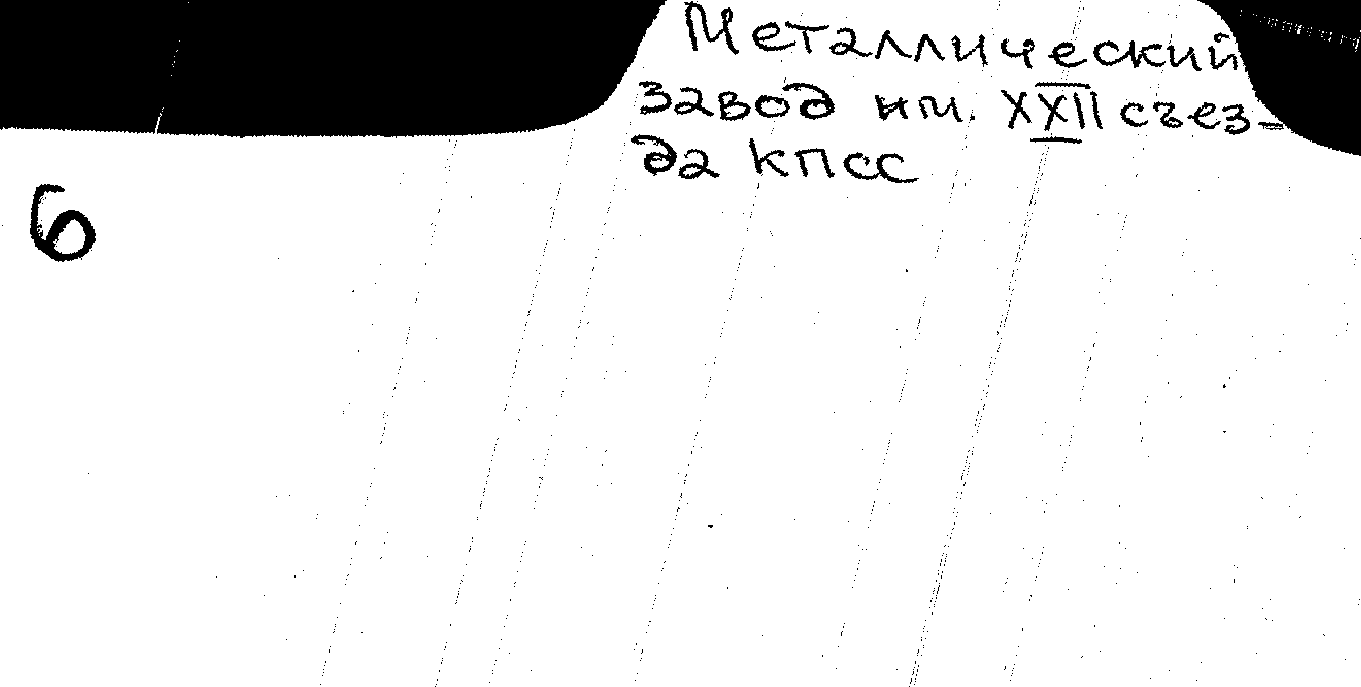 Металлический
завод им. XXII съез-
да КПСС
6